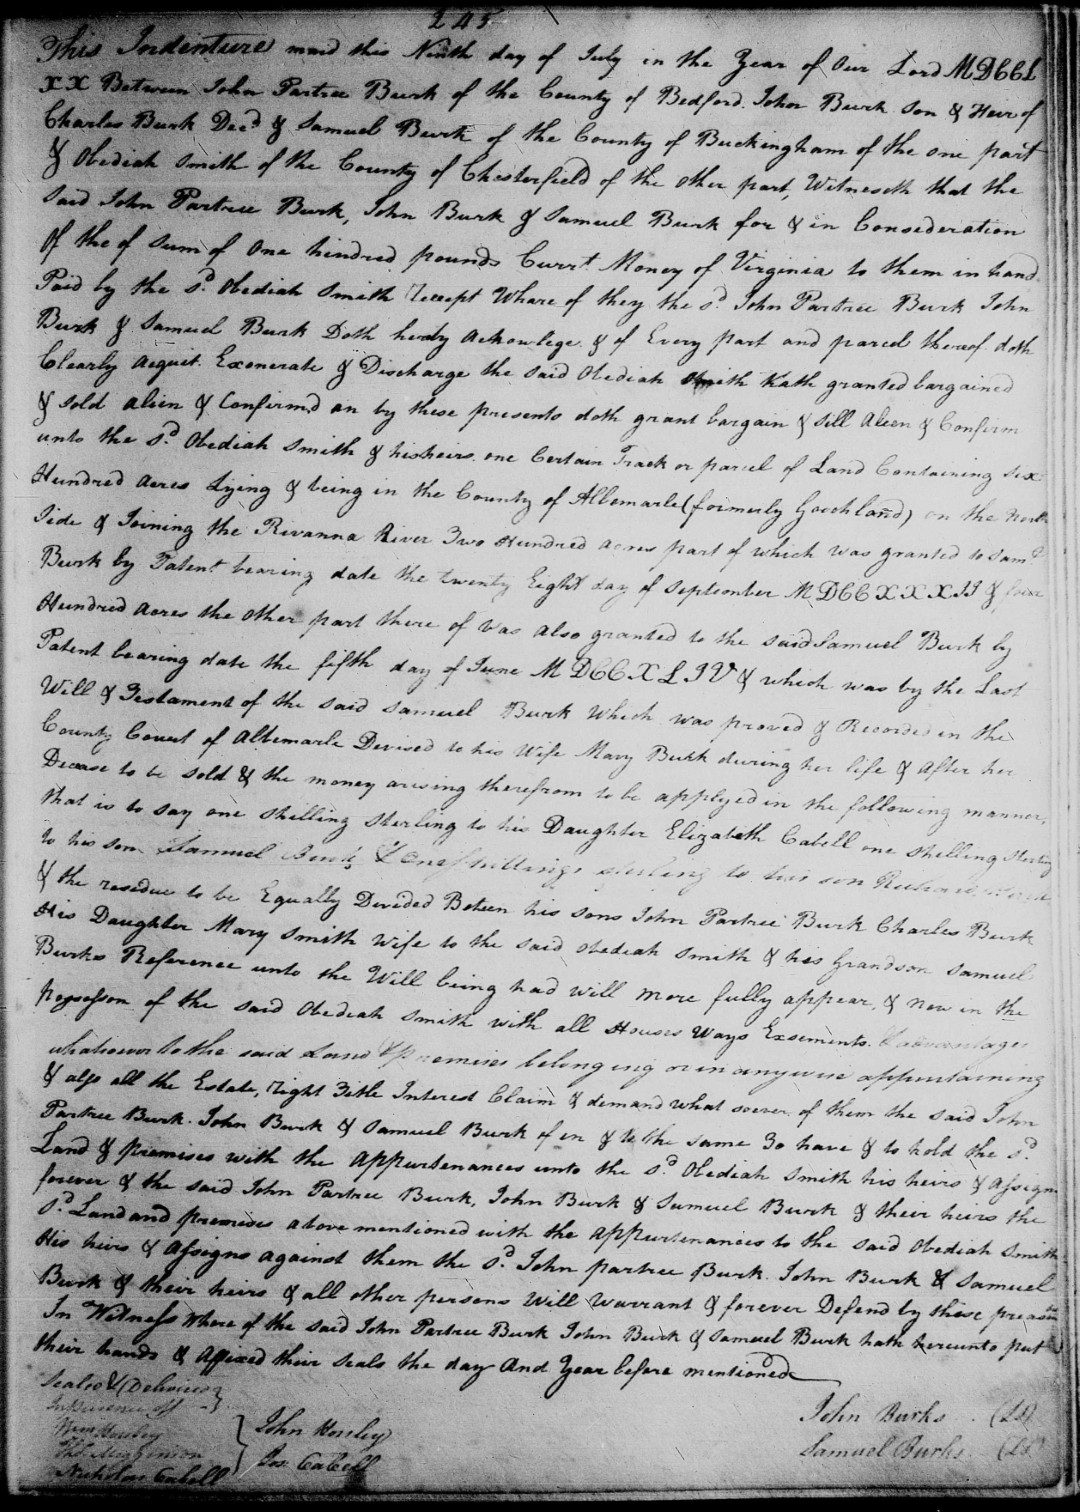 245
This Indenture maid this Ninth day of July in the Year of Our Lord MDCCL
XX Between John Partree Burk of the County of Bedford. John Burk Son & Heir of
Charles Burk Decd & Samuel Burk of the County of Buckingham of the one part
& Obediah Smith of the County of Chesterfield of the other part, Witneseth that the
Said John Partree Burk, John Burk & Samuel Burk for & in Consideration
Of the of Sum of One hindred pounds Currt Money of Virginia to them in hand
Paid by the sd. Obediah Smith recept Whare of they the sd John Partree Burk John
Burk & Samuel Burk Doth herby Acknowlege & of Every part and parcel thereof doth
Clearly Acquit. Exonerate & Discharge the Said Obediah Smith Hath granted bargained
& Sold alien & Confirmd an by these presents doth grant bargain & Sill Aleen & Confirm
unto the sd. Obediah Smith & his heirs one Certain Track or parcel of Land Containing Six
Hundred Acres Lying & being in the County of Albemarle (formerly Goochland) on the North
Side & Joining the Rivanna River Two Hundred acres part of which was granted to Saml
Burk by Patent bearing date the twenty Eight day of September MDCCXXXII & four
Hundred Acres the Other part there of was also granted to the said Samuel Burk by
Patent bearing date the fifth day of June MDCCXLIV & which was by the Last
Will & Testament of the said Samuel Burk Which was proved & Recorded in the
County Court of Albemarle Devised to his Wife Mary Burk during her life & After her
Decease to be Sold & the money arising therefrom to be applyed in the following manner,
that is to say one Shelling Sterling to his Daughter Elizabeth Cabell one Shelling Sterling
to his son Samuel Burk & One Shillings sterling to his son Richard
& the residue to be Equally Devided Beteen his sons John Partree Burk Charles Burk
His Daughter Mary Smith Wife to the said Obediah Smith & his Grandson Samuel
Burks Reference unto the Will being had will more fully appear, & now in the
possesson of the said Obediah Smith with all Houses Ways Exsements & advantages
whatsoever to the said Land & premises belonging or in any wise appurtaining
& also all the Estate, right Title Interest Claim & demand What soever of them the said John
Partree Burk. John Burk & Samuel Burk of in & to the same To have & to hold the sd.
Land & premises with the Appurtenances unto the sd Obediah Smith his heirs & Assigns
forever & the said John Partree Burk, John Burk & Samuel Burk & their heirs the
sd. Land and premises above mentioned with the Appurtenances to the said Obediah Smith
His heirs & Assigns against them the sd. John partree Burk. John Burk & Samuel
Burk & their heirs & all other persons Will Warrant & forever Defend by these preasents
In Witness Where of the said John Partree Burk John Burk & Samuel Burk hath hereunto put
their hands & Affixed their Seals the day And Year before mentioned
Sealed & Delivered
In Presence off
Wm Horsley
John Horsley
Nicholas Cabell
Jos. Cabell
John Burks (LS)
Samuel Burks (LS)